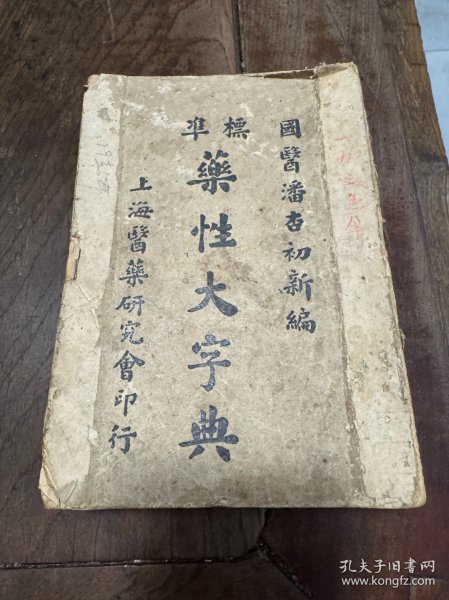 國醫潘杏初新編
標準
藥性大字典
上海醫藥研究會印行
孔夫子旧书网
www.kongfz.com